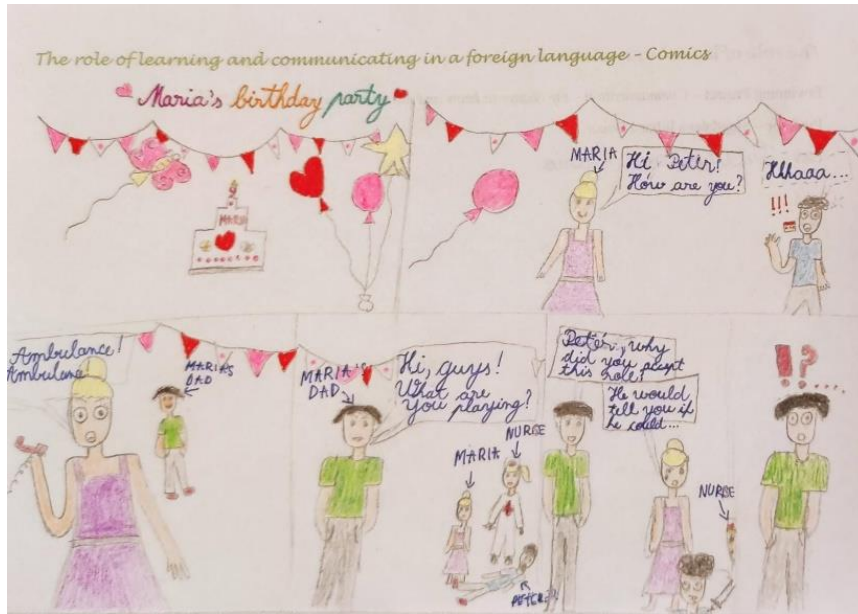 The role of learning and communicating in a foreign language - Comics
Maria's birthday party
MARIA
MARIA
Hi, Peter!
How are you?
Hhaaa...
!!!
Ambulance!
Ambulance!
MARIA'S
DAD
MARIA'S
DAD
Hi, guys!
What are
you playing?
MARIA
NURSE
PETER
Peter, why
did you accept
this role?
He would
tell you if
he could...
NURSE
!?....